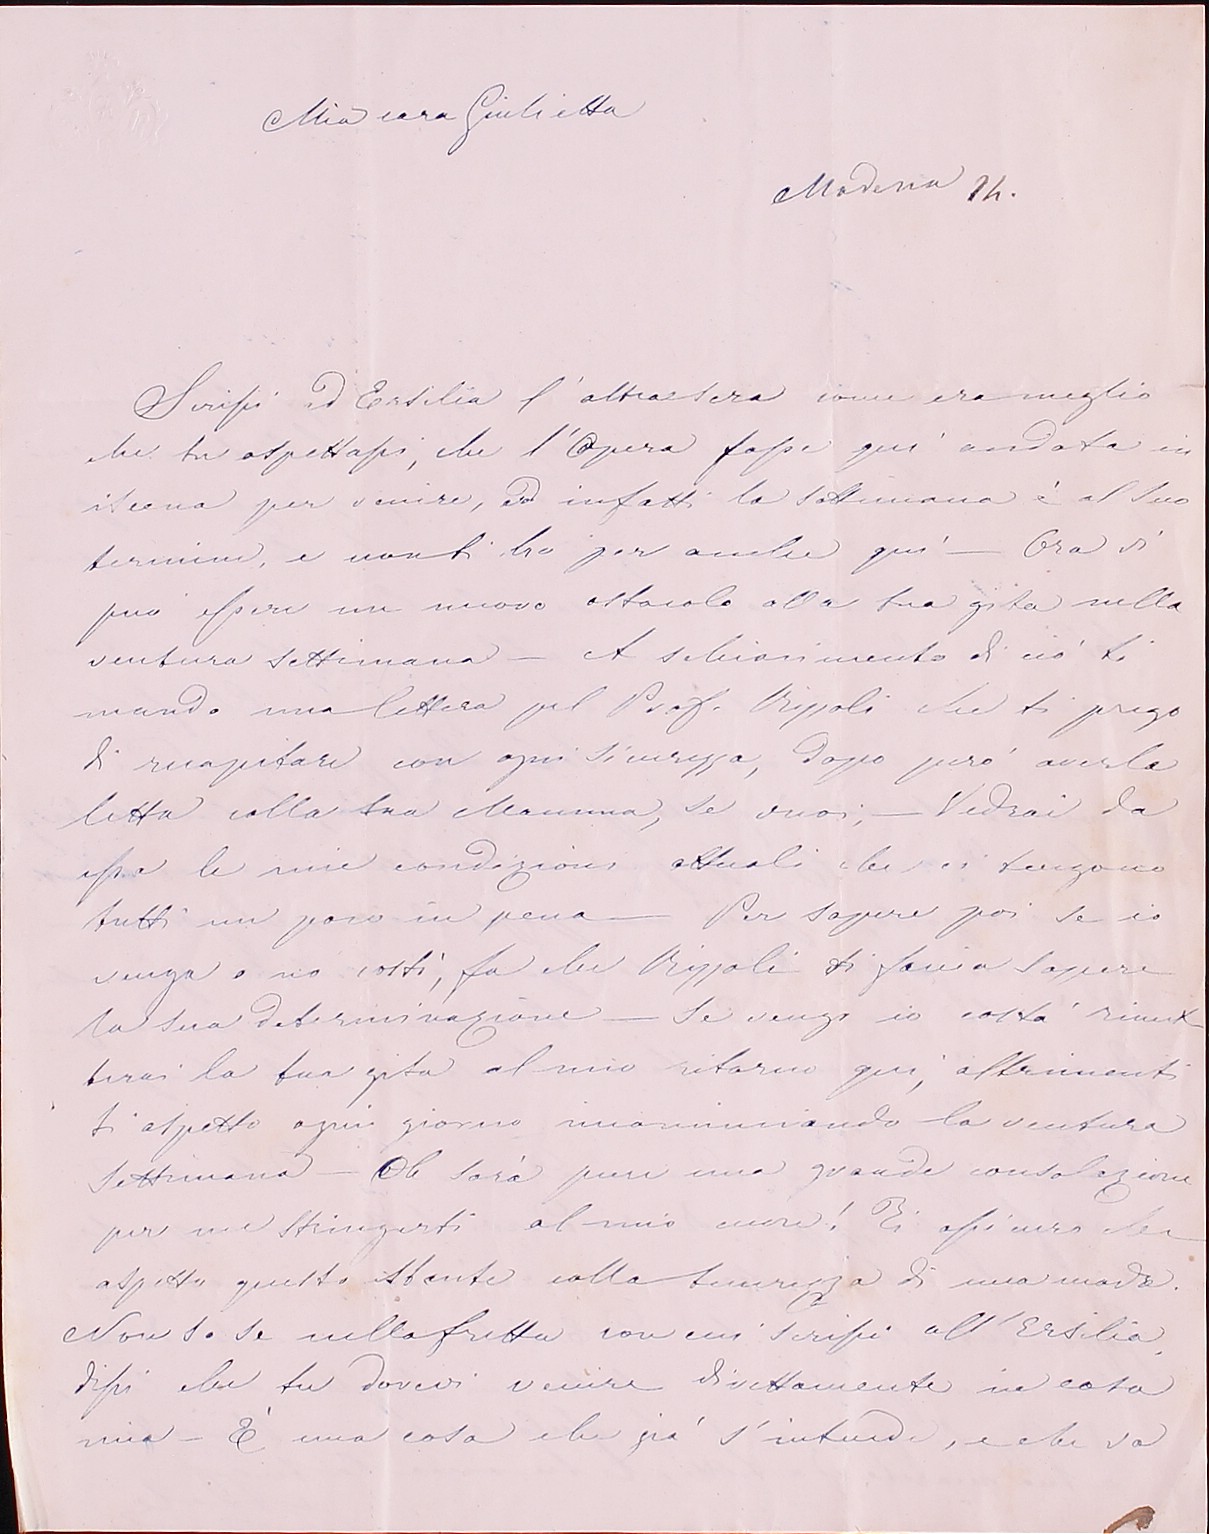 Mia cara Giulietta
Modena 14.
Scrissi ad Ersilia l'altra sera come era meglio
che tu aspettassi, che l'Opera fosse quì andata in
iscena per venire, ed infatti la settimana è al suo
termine, e non ti ho per anche quì — Ora vi
può essere un nuovo ostacolo alla tua gita nella
ventura settimana — A schiarimento di ciò ti
mando una lettera pel Prof. Rippoli che ti prego
di recapitare con ogni sicurezza, dopo però averla
letta colla tua Mamma, se vuoi; — Vedrai da
essa le mie condizioni attuali che ci tengono
tutti un poco in pena — Per sapere poi se io
venga o no costì, fa che Rippoli ti faccia sapere
la sua determinazione — Se vengo io costà rimet-
terai la tua gita al mio ritorno quì, altrimenti
ti aspetto ogni giorno incominciando la ventura
settimana — Oh sarà pure una grande consolazione
per me stringerti al mio cuore! Ti assicuro che
aspetto questo istante colla tenerezza di una madre.
Non so se nella fretta con cui scrissi all'Ersilia,
dissi che tu dovevi venire direttamente in casa
mia — È una cosa che già s'intende, e che va